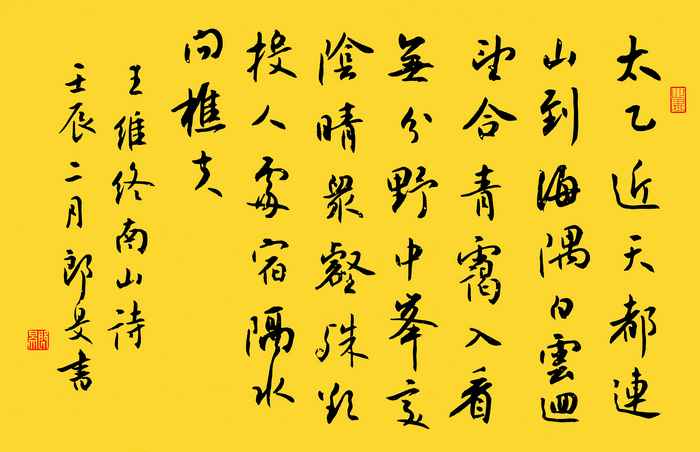 太乙近天都連
山到海隅白雲迴
望合青靄入看
無分野中峯變
陰晴眾壑殊欲
投人處宿隔水
問樵夫
王維終南山詩
壬辰二月郎旻書